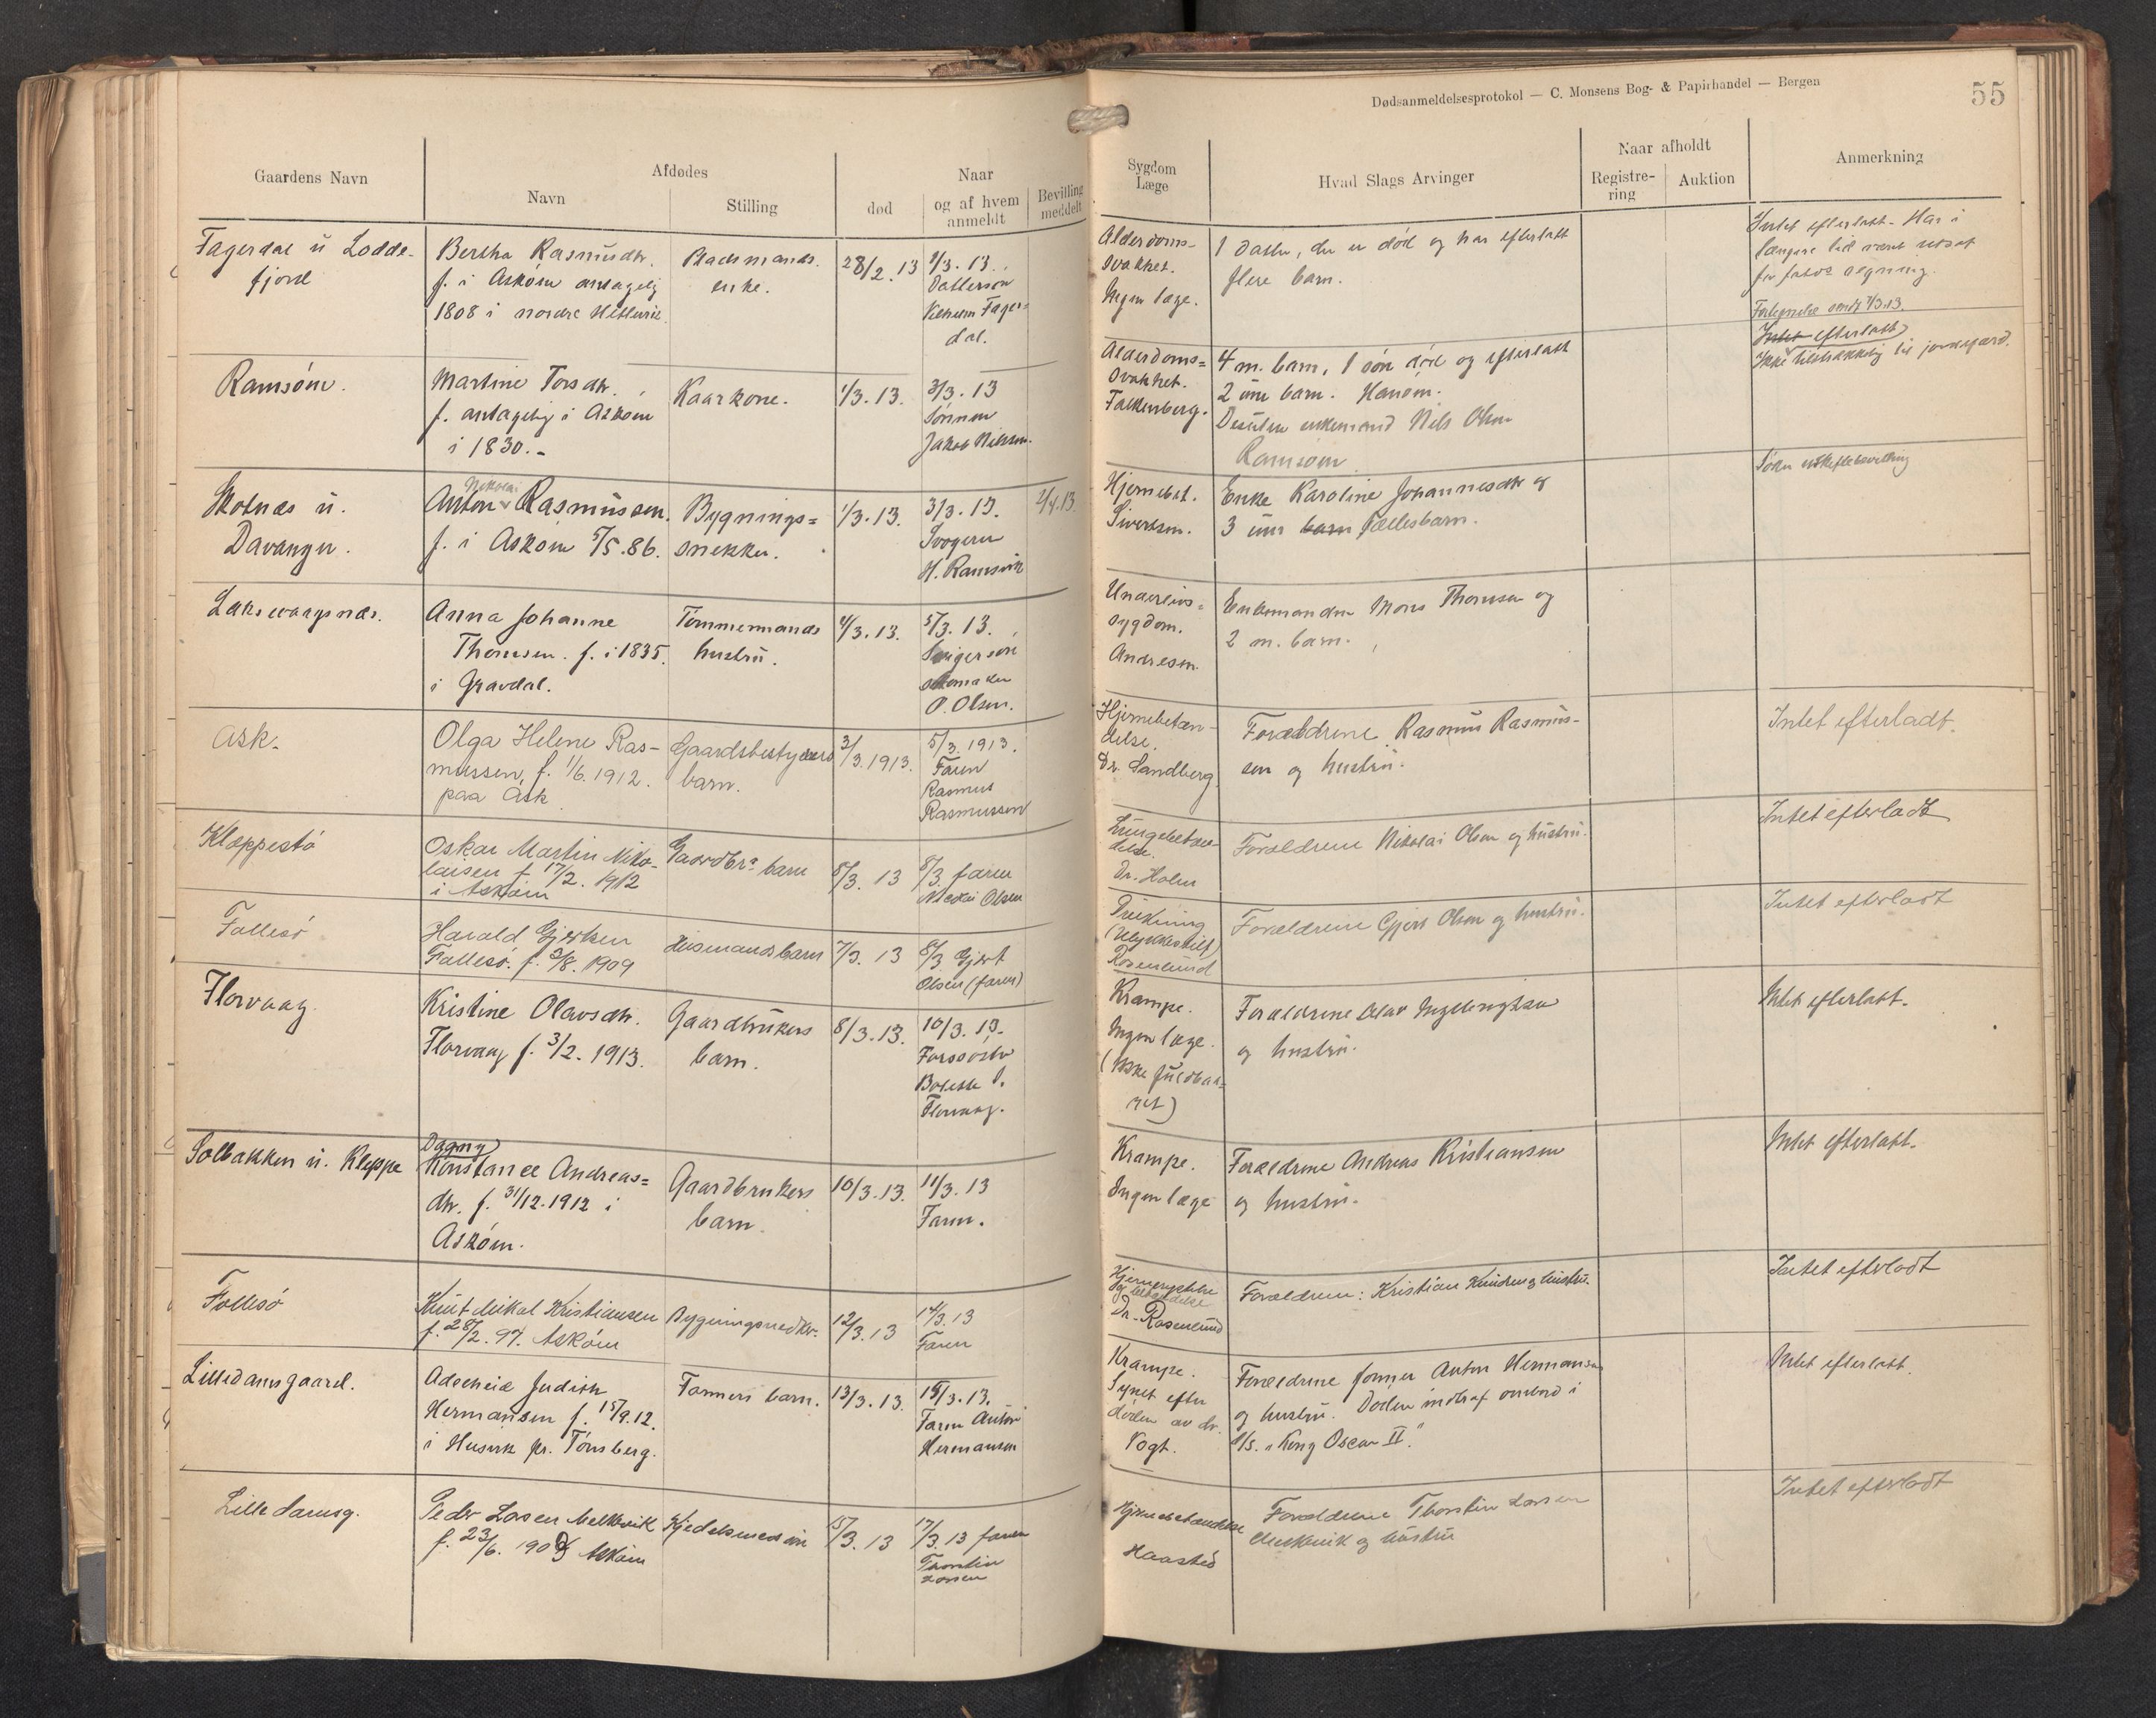 Dødsanmeldelsesprotokol — C. Monsens Bog- & Papirhandel — Bergen
55
Gaardens Navn
Afdødes
Navn
Stilling
død
Naar
og af hvem
anmeldt
Bevilling
meddelt
Sygdom
Læge
Hvad Slags Arvinger
Naar afholdt
Registre-
ring
Auktion
Anmerkning
Fagerdal u Lodde-
fjord
Bertha Rasmusdtr.
f. i Askøen antagelig
1808 i nordre
Pladsmands
enke.
28/2. 13
1/3. 13.
Dattersøn
Vilhelm Fager-
dal.
Alderdoms-
svakhet.
Ingen læge.
1 datter, der er død og har efterlatt
flere barn.
Intet efterlatt. Har i
længere tid været
for
3.13.
Ramsøen.
Martine Torsdtr.
f. antagelig i Askøen
i 1830.-
Kaarkone.
1/3. 13.
3/3. 13
Sønnen
Jakob Nilssen.
Alderdoms=
svakhet.
Falkenberg.
4 m. barn, 1 søn død og efterlatt
2 um barn. Hanøen.
Desuten enkemand Nils Olsen
Ramsøen
Intet efterlatt
Ikke tilstrækkelig til jordefærd.
Skotnes u.
Davanger.
Nikolai
Anton Rasmussen.
f. i Askøen 5/5.86.
Bygnings=
snekker.
1/3. 13.
3/3. 13.
Svogeren
H. Ramsvik
2/4.13.
Hjernebet.
Sivertsen.
Enke Karoline Johannesdtr og
3 um barn fællesbarn.
Søker uskiftebevilling
Laksevaagsnes.
Anna Johanne
Thomsen. f. i 1835.
i Gravdal.
Tømmermands
hustru.
4/3. 13.
5/3. 13.
Svigersøn
skomaker
O. Olsen.
Underlivs=
sygdom.
Andresen.
Enkemanden Mons Thomsen og
2 m. barn.
Ask.
Olga Helene Ras-
mussen, f. 1/6. 1912.
paa Ask
Gaardsbestyrers
barn.
3/3. 1913.
5/3. 1913.
Faren
Rasmus
Rasmussen
Hjernebetæn-
delse.
Dr. Sandberg
Forældrene Rasmus Rasmus-
sen og hustru.
Intet efterladt.
Kleppestø
Oskar Martin Niko-
laisen f. 17/2. 1912
i Askøen
Gaardbrs. barn
8/3. 13
8/3 faren
Nicolai Olsen
Lungebetæn-
delse.
Dr. Holm
Forældrene Nikolai Olsen og hustru.
Intet efterladt
Follesø
Harald Gjertsen
Follesø. f. 2/8. 1909
Husmandsbarn
7/3. 13
8/3 Gjert
Olsen (faren)
Drukning
(Ulykkestilf)
Rosenlund
Forældrene Gjert Olsen og hustru.
Intet efterladt
Florvaag
Kristine Olavsdtr.
Florvaag f. 3/2. 1913.
Gaardbrukers
barn.
8/3. 13.
10/3. 13.
Farssøster
Bolette O.
Florvaag.
Krampe.
Ingen læge.
(Ikke fuldbaa-
ret)
Forældrene Olav
og hustru.
Intet efterlatt.
Solbakken u. Kleppe
Dagny
Konstance Andreas=
dtr. f. 31/12.1912 i
Askøen.
Gaardbrukers
barn.
10/3. 13.
11/3. 13
Faren.
Krampe.
Ingen læge
Forældrene Andreas Kristiansen
og hustru.
Intet efterlatt.
Follesø
Knut Mikal Kristiansen
f. 28/2. 97. Askøen
Bygningssnedker.
12/3. 13
14/3. 13
Faren
Dr. Rosenlund
Forældrene: Kristian Knudsen og hustru.
Intet efterladt
Lilledamsgaard.
Adeleide Judith
Hermansen f. 15/9.12.
i Husvik pr. Tønsberg.
Formers barn.
13/3. 13.
15/3. 13.
Faren Anton
Hermansen
Krampe.
Synet efter
døden av dr.
Vogt.
Forældrene former Anton Hermansen
og hustru. Døden indtraf ombord i
D/S. "Kong Oscar II."
Intet efterlatt.
Lille damsg.
Peder Larsen Melkevik
f. 23/6. 190 Askøen
Kjedelsmed
15/3. 13
17/3. 13 faren
Thorstin
Larsen
Hjernebetændelse
Haasted
Forældrene Thorstin Larsen
Melkevik og hustru
Intet efterladt